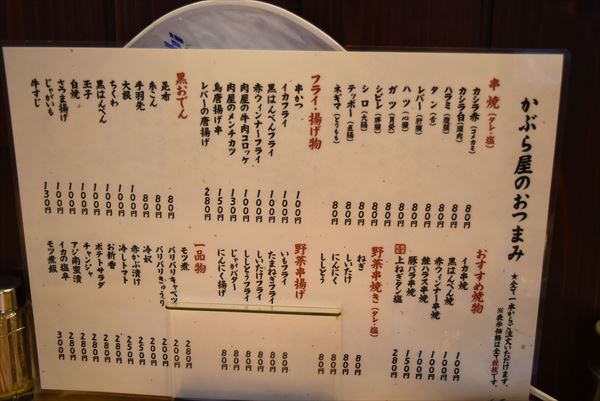 かぶら屋のおつまみ
★全て一本からご注文いただけます。
※表示価格は全て税抜です。
串焼(タレ・塩)
カシラ赤(コメカミ) 80円
カシラ白(頭肉) 80円
ハラミ(横隔膜) 80円
タン(舌) 80円
レバー(肝臓) 80円
ハツ(心臓) 80円
ガツ(胃袋) 80円
シビレ(膵臓) 80円
シロ(大腸) 80円
テッポー(直腸) 80円
ネギマ(とりもも) 80円
フライ・揚げ物
串かつ 100円
イカフライ 100円
黒はんぺんフライ 100円
赤ウィンナーフライ 100円
肉屋の牛肉コロッケ 100円
肉屋のメンチカツ 130円
鳥唐揚げ串 150円
レバーの唐揚げ 280円
黒おでん
昆布 80円
糸こん 80円
手羽先 80円
大根 100円
ちくわ 100円
黒はんぺん 100円
玉子 100円
白焼 100円
さつま揚げ 100円
じゃがいも 100円
牛すじ 130円
おすすめ焼物
イカ串焼 100円
黒はんぺん焼 100円
赤ウィンナー串焼 100円
鮭ハラス串焼 100円
豚バラ串焼 150円
上ねぎタン塩 280円
野菜串焼き(タレ・塩)
ねぎ 80円
しいたけ 80円
にんにく 80円
ししとう 80円
野菜串揚げ
いもフライ 80円
たまねぎフライ 80円
しいたけフライ 80円
ししとうフライ 80円
じゃがバター 80円
にんにく揚げ 80円
一品物
モツ煮 280円
バリバリキャベツ 200円
バリバリきゅうり 200円
冷奴 200円
赤かぶ漬け 250円
冷しトマト 250円
お新香 280円
ポテトサラダ 280円
チャンジャ 280円
アジ南蛮漬 280円
イカの塩辛 280円
モツ煮銀 300円